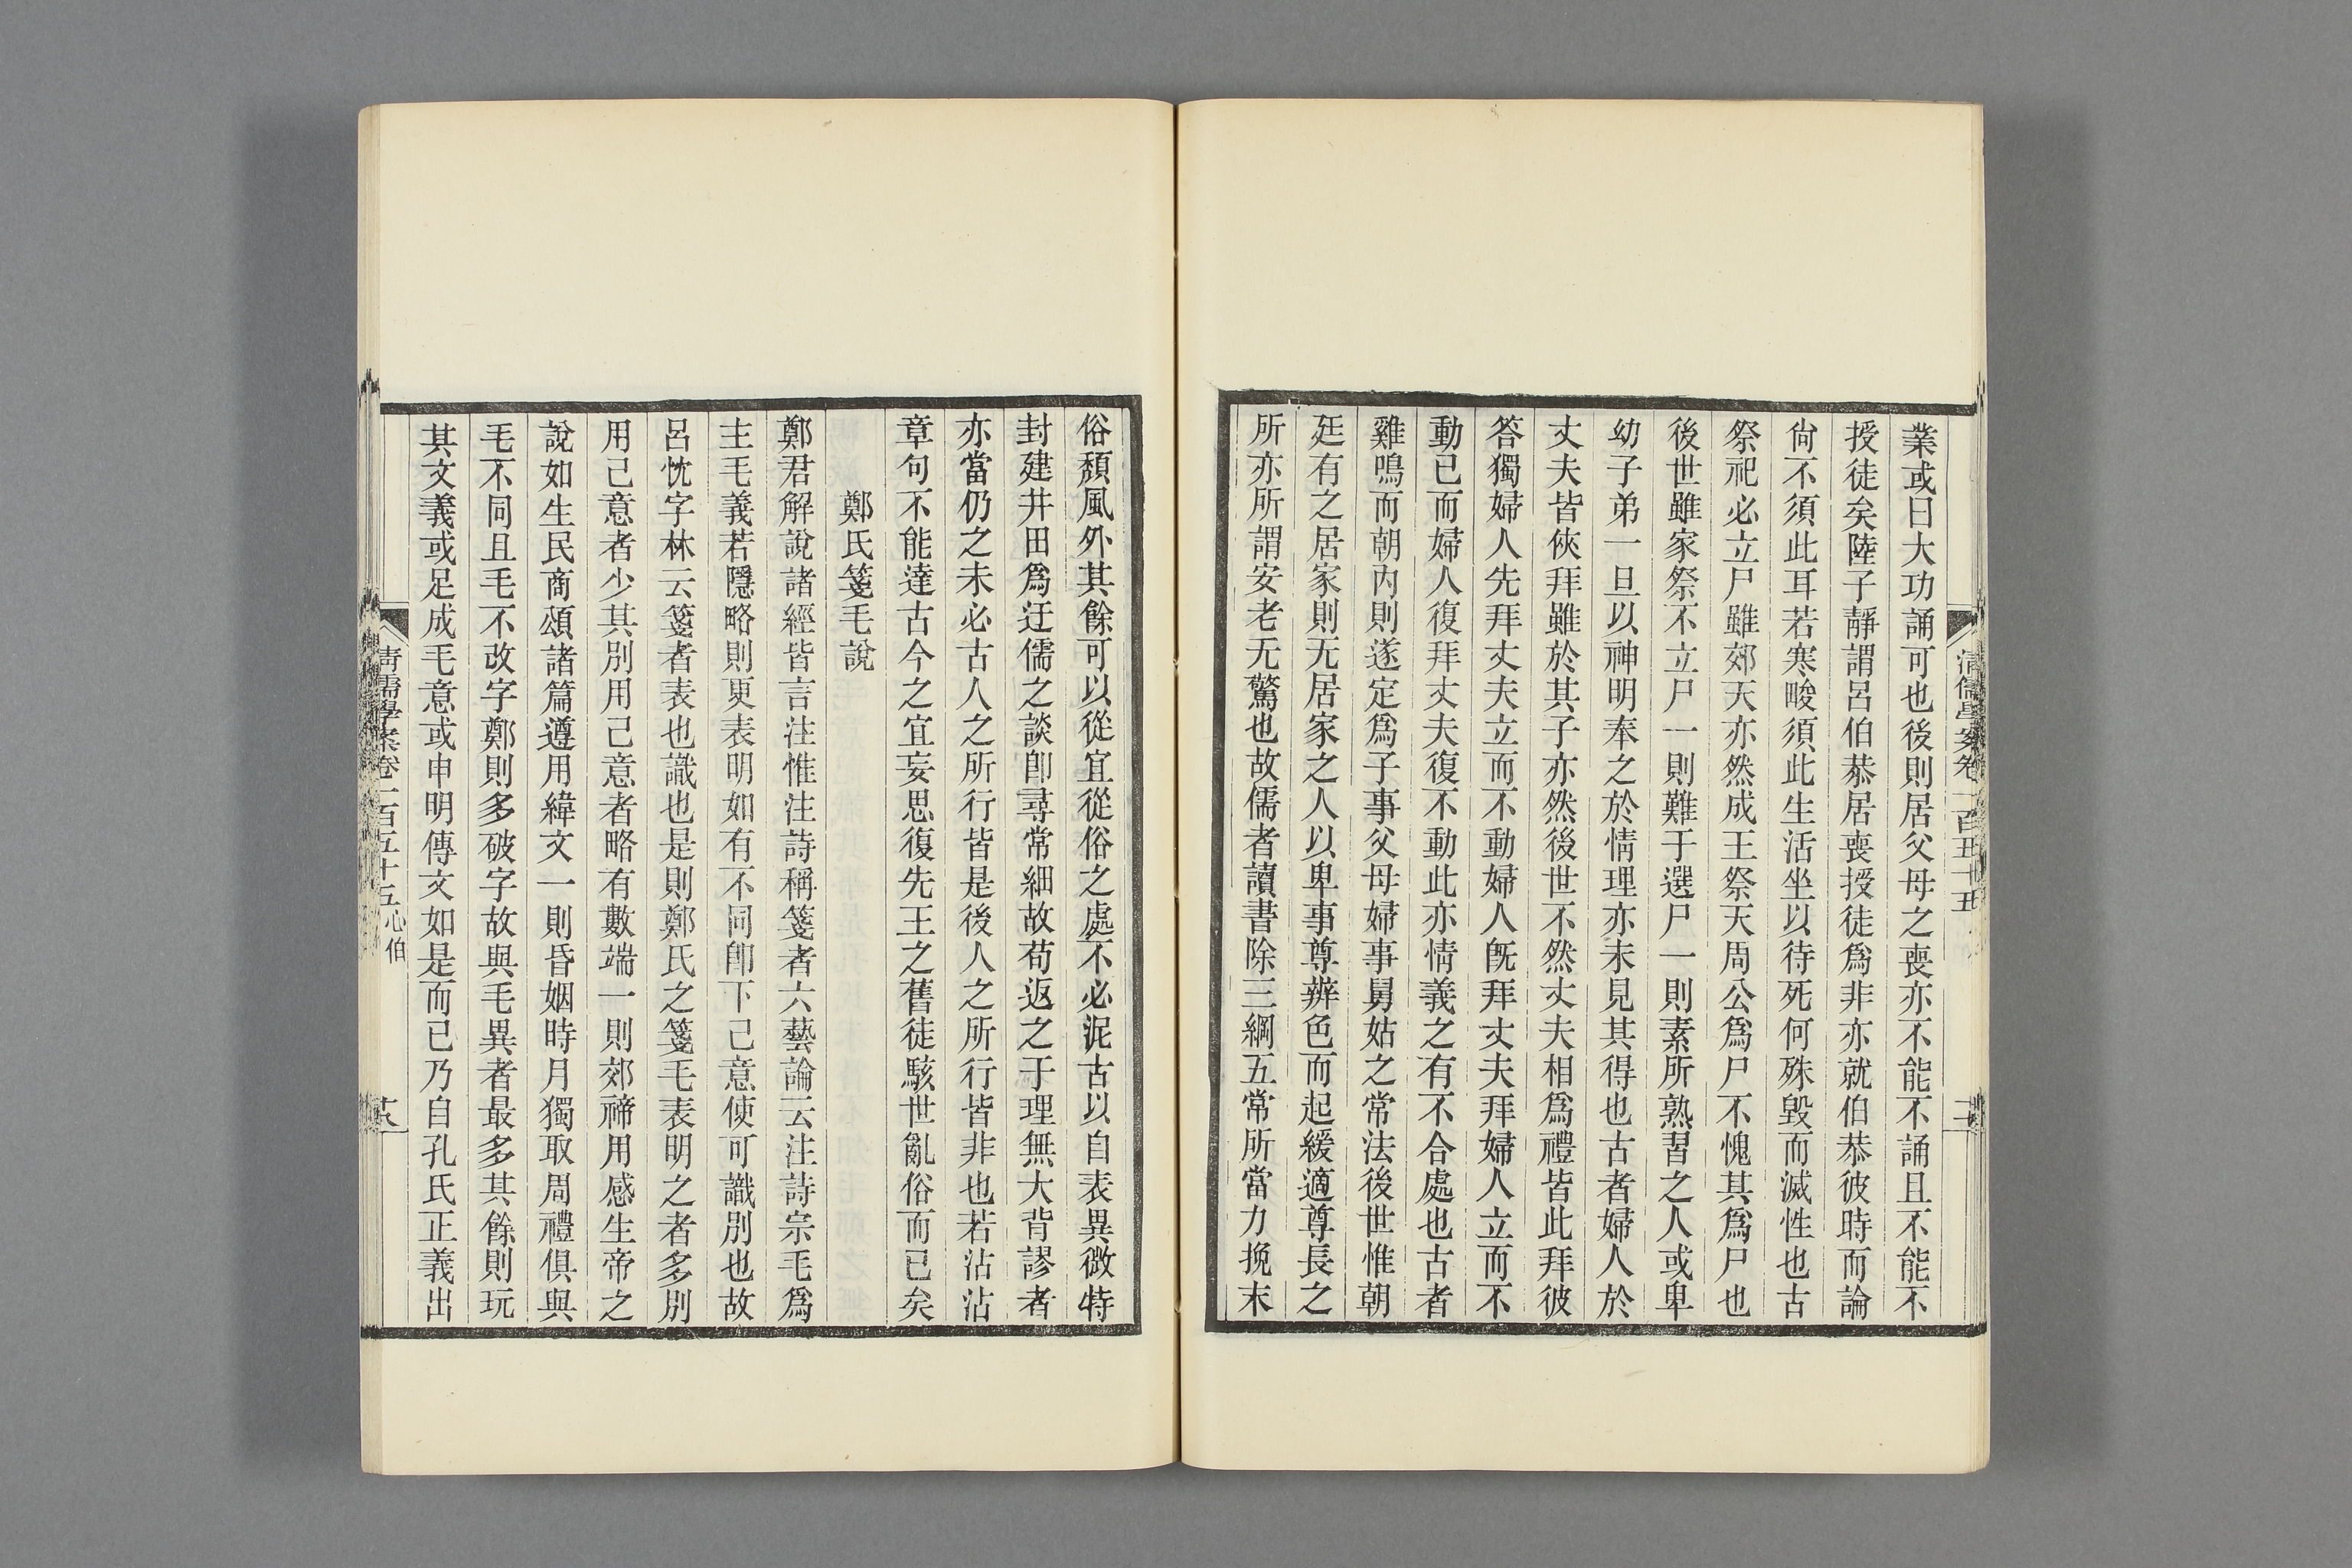 業或曰大功誦可也後則居父母之喪亦不能不誦且不能不
授徒矣陸子靜謂呂伯恭居喪授徒爲非亦就伯恭彼時而論
尙不須此耳若寒畯須此生活坐以待死何殊毀而滅性也古
祭祀必立尸雖郊天亦然成王祭天周公爲尸不愧其爲尸也
後世雖家祭不立尸一則難于選尸一則素所熟習之人或卑
幼子弟一旦以神明奉之於情理亦未見其得也古者婦人於
丈夫皆俠拜雖於其子亦然後世不然丈夫相爲禮皆此拜彼
答獨婦人先拜丈夫立而不動婦人旣拜丈夫拜婦人立而不
動已而婦人復拜丈夫復不動此亦情義之有不合處也古者
雞鳴而朝內則遂定爲子事父母婦事舅姑之常法後世惟朝
廷有之居家則无居家之人以卑事尊辨色而起緩適尊長之
所亦所謂安老无驚也故儒者讀書除三綱五常所當力挽末
俗頹風外其餘可以從宜從俗之處不必泥古以自表異微特
封建井田爲迂儒之談卽尋常細故苟返之于理無大背謬者
亦當仍之未必古人之所行皆是後人之所行皆非也若沾沾
章句不能達古今之宜妄思復先王之舊徒駭世亂俗而已矣
鄭氏箋毛說
鄭君解說諸經皆言注惟注詩稱箋者六藝論云注詩宗毛爲
主毛義若隱略則更表明如有不同卽下己意使可識別也故
呂忱字林云箋者表也識也是則鄭氏之箋毛表明之者多別
用己意者少其別用己意者略有數端一則郊禘用感生帝之
說如生民商頌諸篇遵用緯文一則昏姻時月獨取周禮俱與
毛不同且毛不改字鄭則多破字故與毛異者最多其餘則玩
其文義或足成毛意或申明傳文如是而已乃自孔氏正義出
清儒學案卷一百五十五 心伯